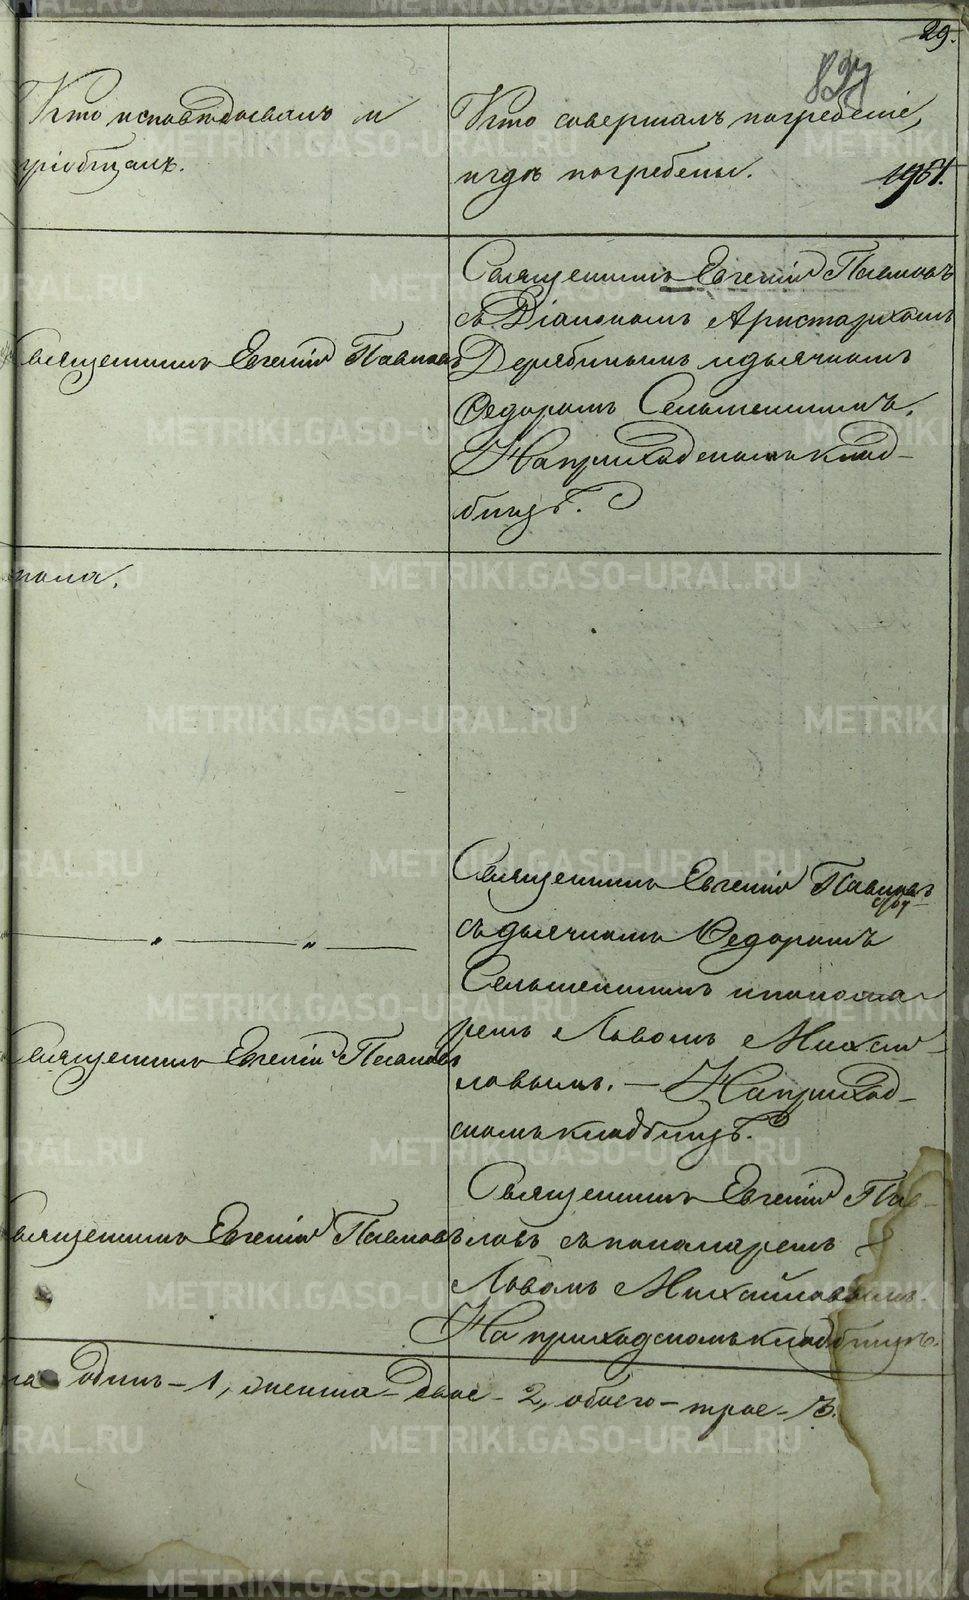 29.
827
Кто исповѣдовалъ и
пріобщалъ.
Кто совершалъ погребеніе,
и гдѣ погребены.
1951.
Священникъ Евгеній Павловъ
Священникъ Евгеній Павловъ
съ Діакономъ Аристархомъ
Дерябинымъ и дьячкомъ
Ѳедоромъ Сельменскимъ.
На приходскомъ клад-
бищѣ.
пола.
Священникъ Евгеній Павловъ
съ дьячкомъ Ѳедоромъ
Сельменскимъ и понома-
ремъ Львомъ Михай-
ловымъ. — На приход-
скомъ кладбищѣ.
— „ — „ —
Священникъ Евгеній Павловъ
Священникъ Евгеній Павловъ
Священникъ Евгеній Пав-
ловъ съ пономаремъ
Львомъ Михайловымъ.
На приходскомъ кладбищѣ.
одинъ - 1, женска - двое - 2, обоего - трое - 3.
METRIKI.GASO-URAL.RU